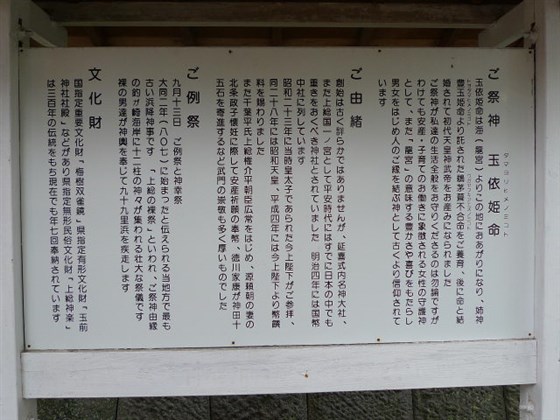 ご祭神 玉依姫命
タマヨリヒメノミコト
玉依姫命は海(龍宮)よりこの地におあがりになり、姉神
豊玉姫命より託された鵜茅葺不合命をご養育、後に命と結
婚されて初代天皇神武帝をお産みになられました
ご祭神が私達の生活全般をお守りくださるのは勿論ですが
わけても安産・子育てのお働きに象徴される女性の守護神
として、また「龍宮」の意味する豊かさや喜びをもたらし
男女をはじめ人のご縁を結ぶ神として古くより信仰されて
います
ご由緒
創始は古く詳らかではありませんが、延喜式内名神大社、
また上総国一ノ宮として平安時代にはすでに日本の中でも
重きをおくべき神社とされていました 明治四年には国幣
中社に列しています
昭和二十三年に当時皇太子であられた今上陛下がご参拝、
同二十八年には昭和天皇、平成四年には今上陛下より幣饌
料を賜わりました
また千葉平氏上総権介平朝臣広常をはじめ、源頼朝の妻の
北条政子懐妊に際して安産祈願の奉幣、徳川家康が神田十
五石を寄進するなど武門の崇敬も多く厚いものでした
ご例祭
九月十三日 ご例祭と神幸祭
大同二年(八〇七)に始まったと伝えられる当地方で最も
古い浜降神事です 「上総の裸祭」といわれ、ご祭神由縁
の釣ヶ崎海岸に十二社の神々が集われる壮大な祭儀です
裸の男達が神輿を奉じて九十九里浜を疾走します
文化財
国指定重要文化財「梅樹双雀鏡」県指定有形文化財「玉前
神社社殿」などがあり県指定無形民俗文化財「上総神楽」
は三百年の伝統をもち現在でも年七回奉納されています